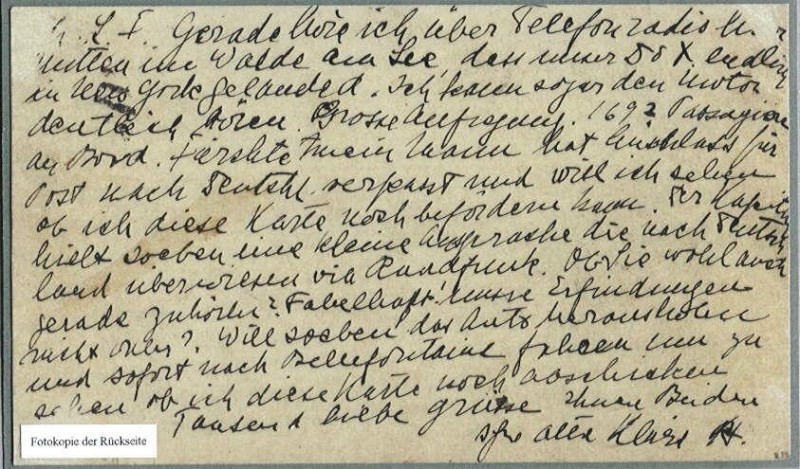 L. F. Gerade höre ich über Telefonradio
mitten im Walde am See dass unser DO X endlich
in New York gelanded. Ich kann sogar den Motor
deutlich hören. Grosse Aufregung. 169 Passagiere
an Bord. Fürchte mein Mann hat Anschluss für
Post nach Deutschl. verpasst und will ich sehen
ob ich diese Karte noch befördern kann. Der Kapitän
hielt soeben eine kleine Ansprache die nach Deutsch
land überwiesen via Rundfunk. Ob Sie wohl auch
gerade zuhören? Fabelhaft! unsere Erfindungen
nicht wahr? Will soeben das Auto herausholen
und sofort nach Bellefontaine fahren um zu
sehen ob ich diese Karte noch abschicken
Tausend liebe Grüsse Ihnen Beiden
Ihre alte H.
Fotokopie der Rückseite